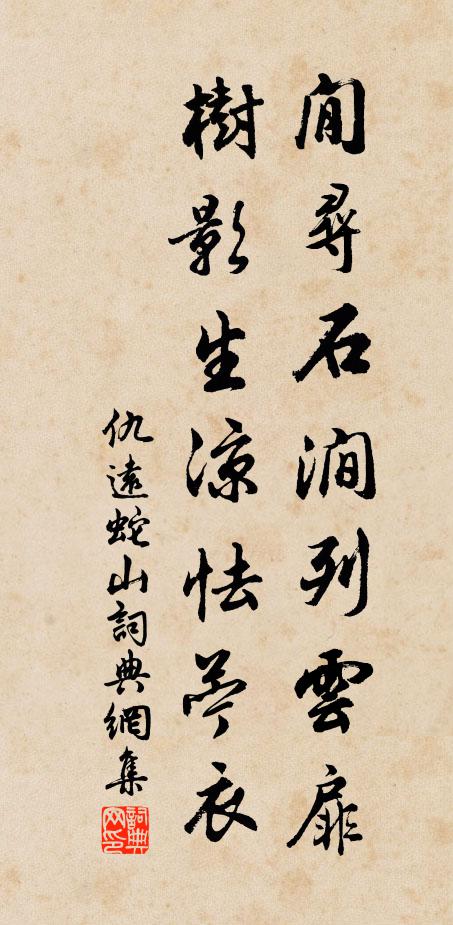 閒尋石澗列雲扉
樹影生涼怯苧衣
仇遠蛇山詞典網集
詞典网印